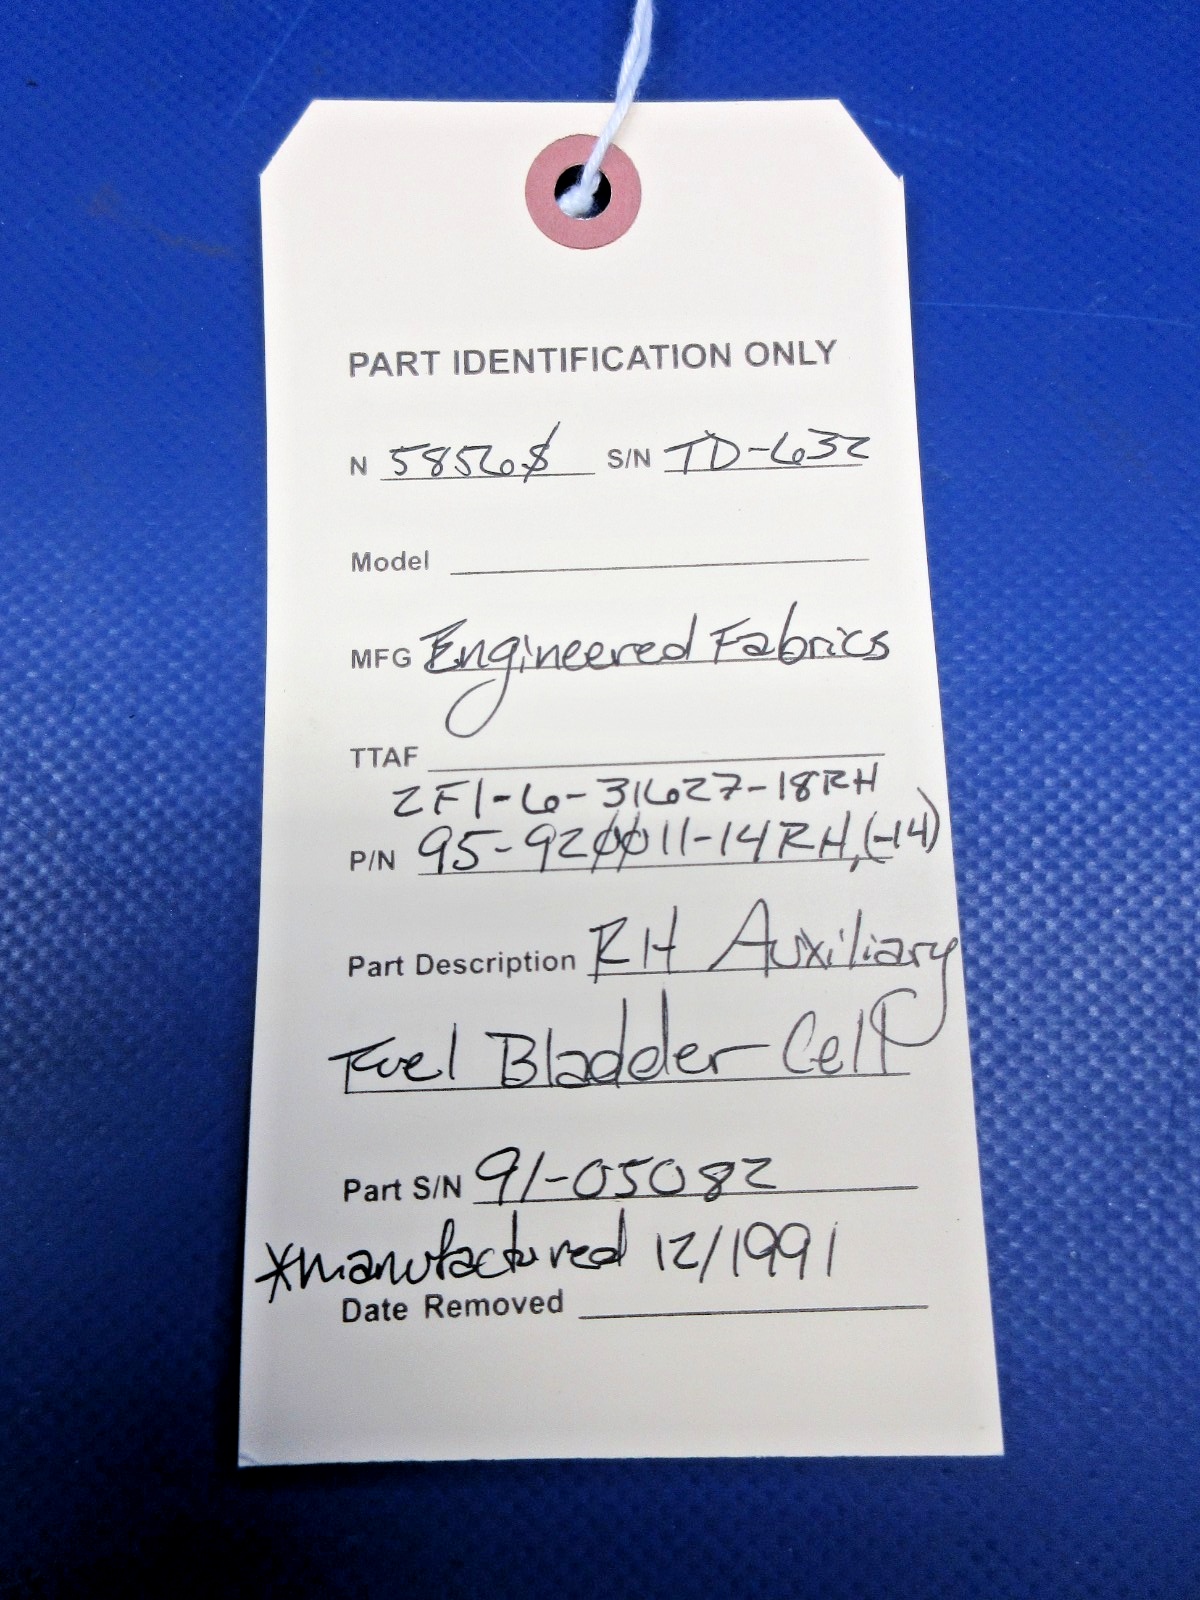 PART IDENTIFICATION ONLY
N 5856S S/N TD-632
Model
MFG Engineered Fabrics
TTAF
2F1-6-31627-18RH
P/N 95-920011-14RH,(-14)
Part Description RH Auxiliary
Fuel Bladder Cell
Part S/N 91-05082
*manufactured 12/1991
Date Removed